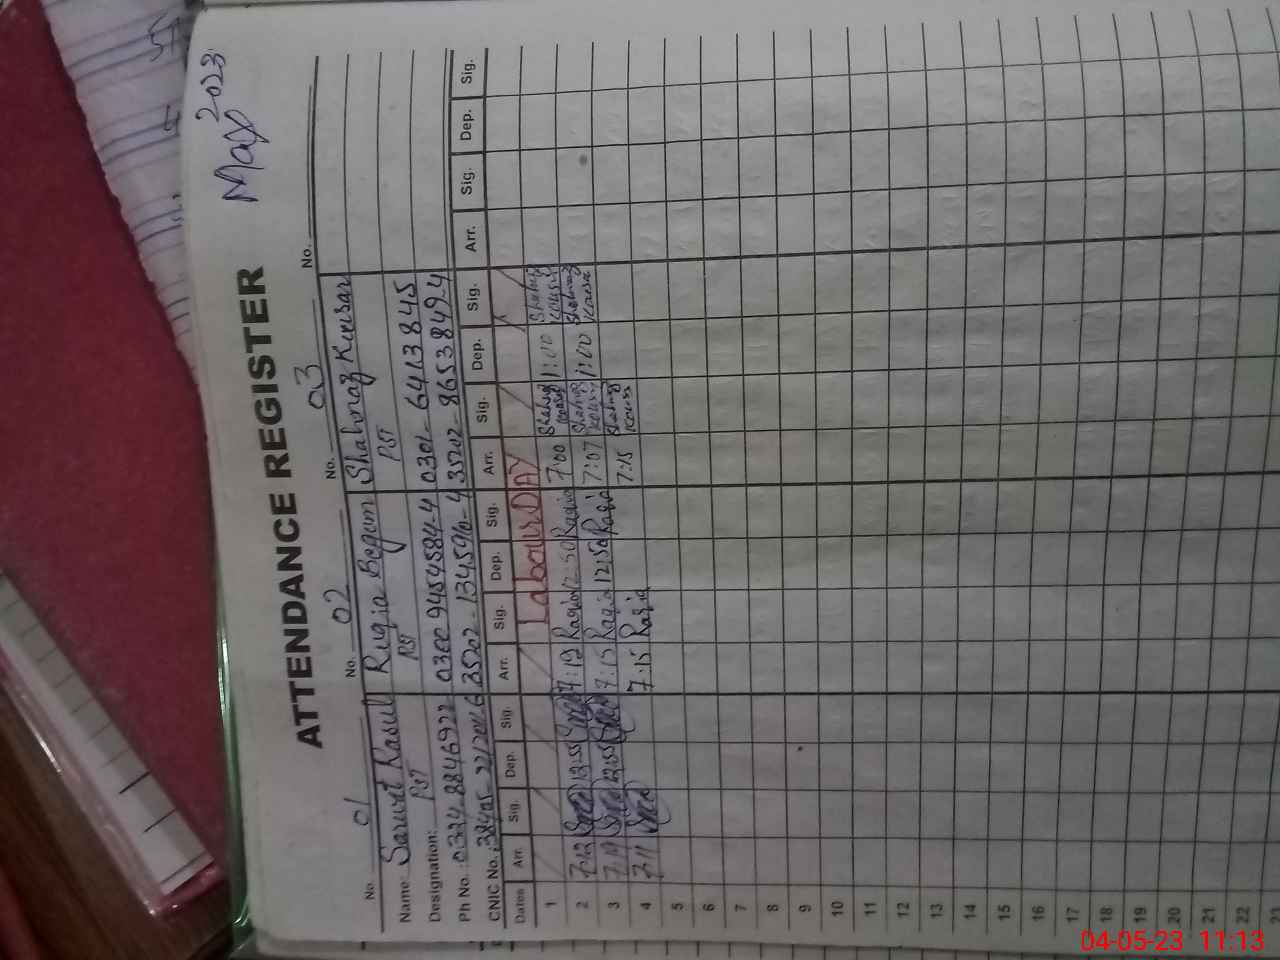 May 2023
ATTENDANCE REGISTER
No. 01 No. 02 No. 03 No.
Name: Sarwat Rasul Ruqia Begam Shahnaz Kausar
Designation: PST PST PST
Ph No.: 0334-8846922 0300 9454584-4 0301-6413845
CNIC No. 35202-134590-4 35202-8653849-4
Dates Arr. Sig. Dep. Sig. Arr. Sig. Dep. Sig. Arr. Sig. Dep. Sig. Arr. Sig. Dep. Sig.
1 Labour DAY
2 7:12 12:55 7:19 Ruqia 12:50 Ruqia 7:00 Shahnaz Kausar 1:00 Shahnaz Kausar
3 7:19 12:55 7:15 Ruqia 12:50 Ruqia 7:07 Shahnaz Kausar 1:00 Shahnaz Kausar
4 7:11 7:15 Ruqia 7:15 Shahnaz Kausar
5
6
7
8
9
10
11
12
13
14
15
16
17
18
19
20
21
22
23
04-05-23 11:13